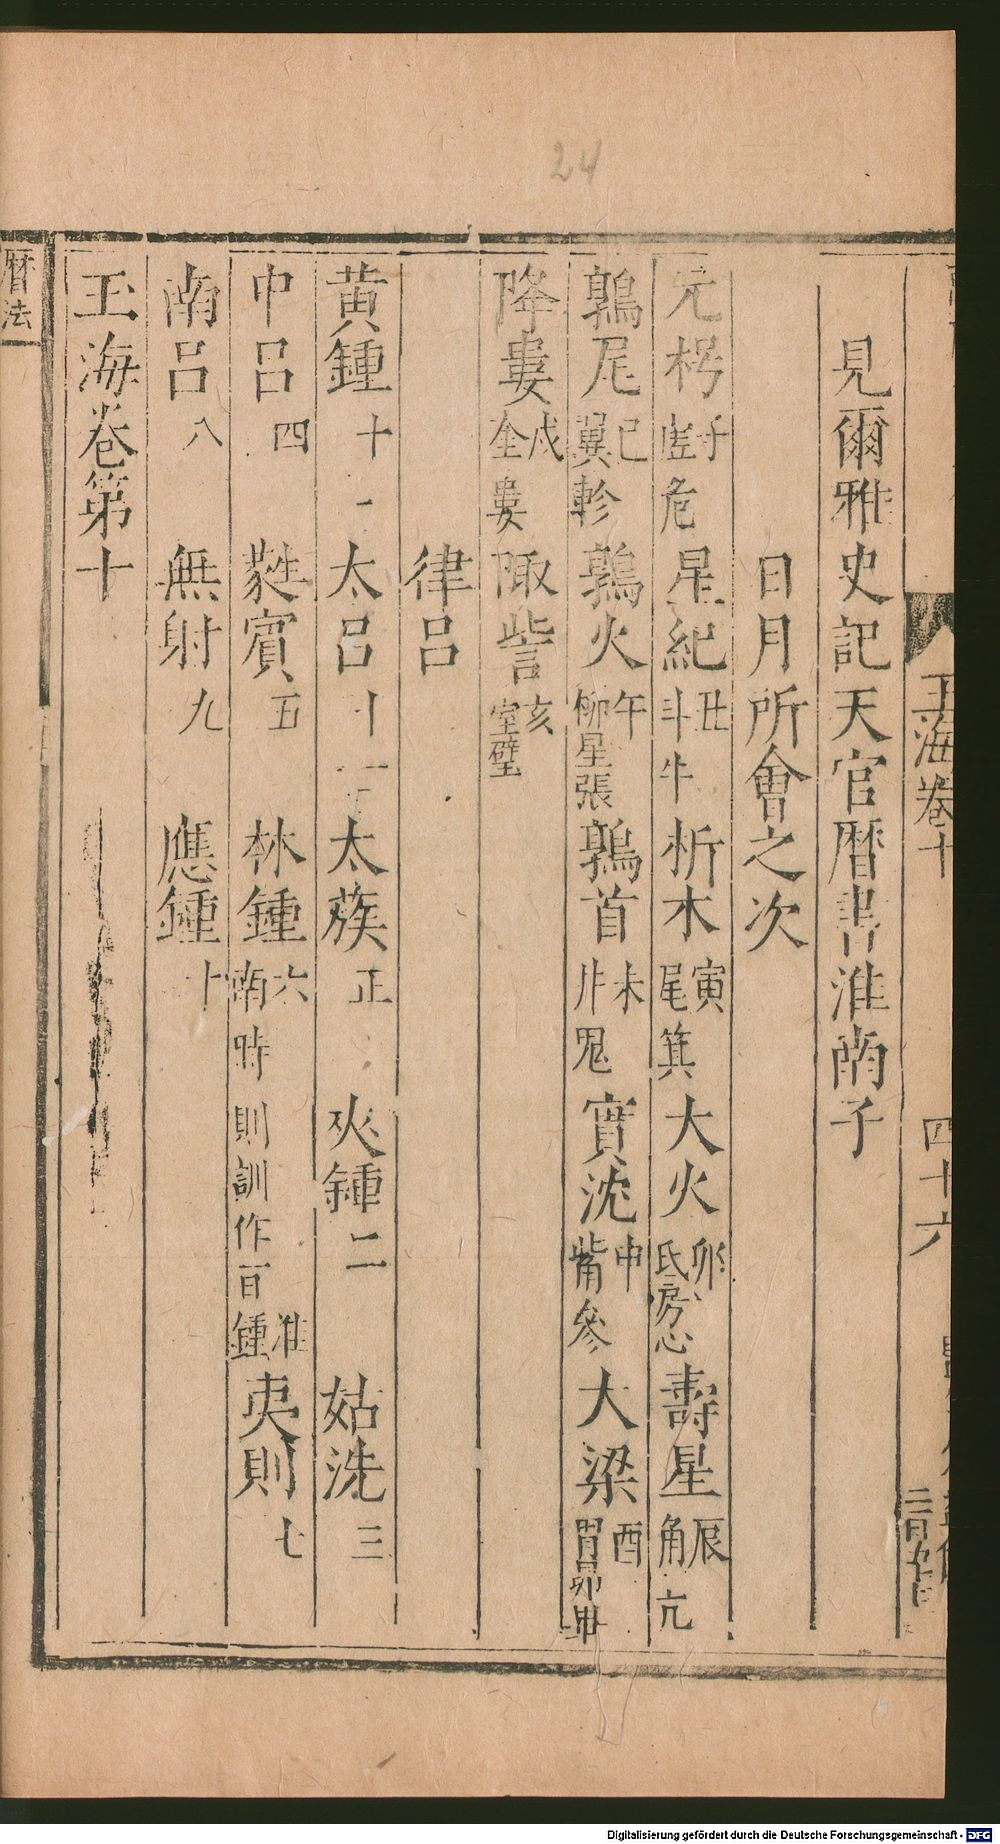 24
玉海卷十 四十六
見爾雅史記天官曆書淮南子
日月所會之次
元枵 子 虛危 星紀 丑 斗牛 析木 寅 尾箕 大火 卯 氐房心 壽星 辰 角亢
鶉尾 巳 翼軫 鶉火 午 柳星張 鶉首 未 井鬼 實沈 申 觜參 大梁 酉 胃昴畢
降婁 戌 奎婁 陬訾 亥 室壁
律呂
黃鍾 十一 太呂 十二 太蔟 正 夾鍾 二 姑洗 三
中呂 四 蕤賓 五 林鍾 六 淮南時則訓作百鍾 夷則 七
南呂 八 無射 九 應鍾 十
玉海卷第十
曆法
Digitalisierung gefördert durch die Deutsche Forschungsgemeinschaft - DFG